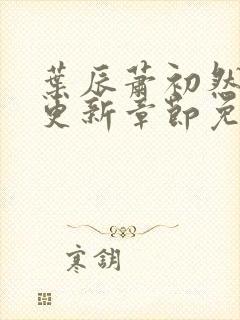 葉辰蕭初然
更新章節免
寒鈅